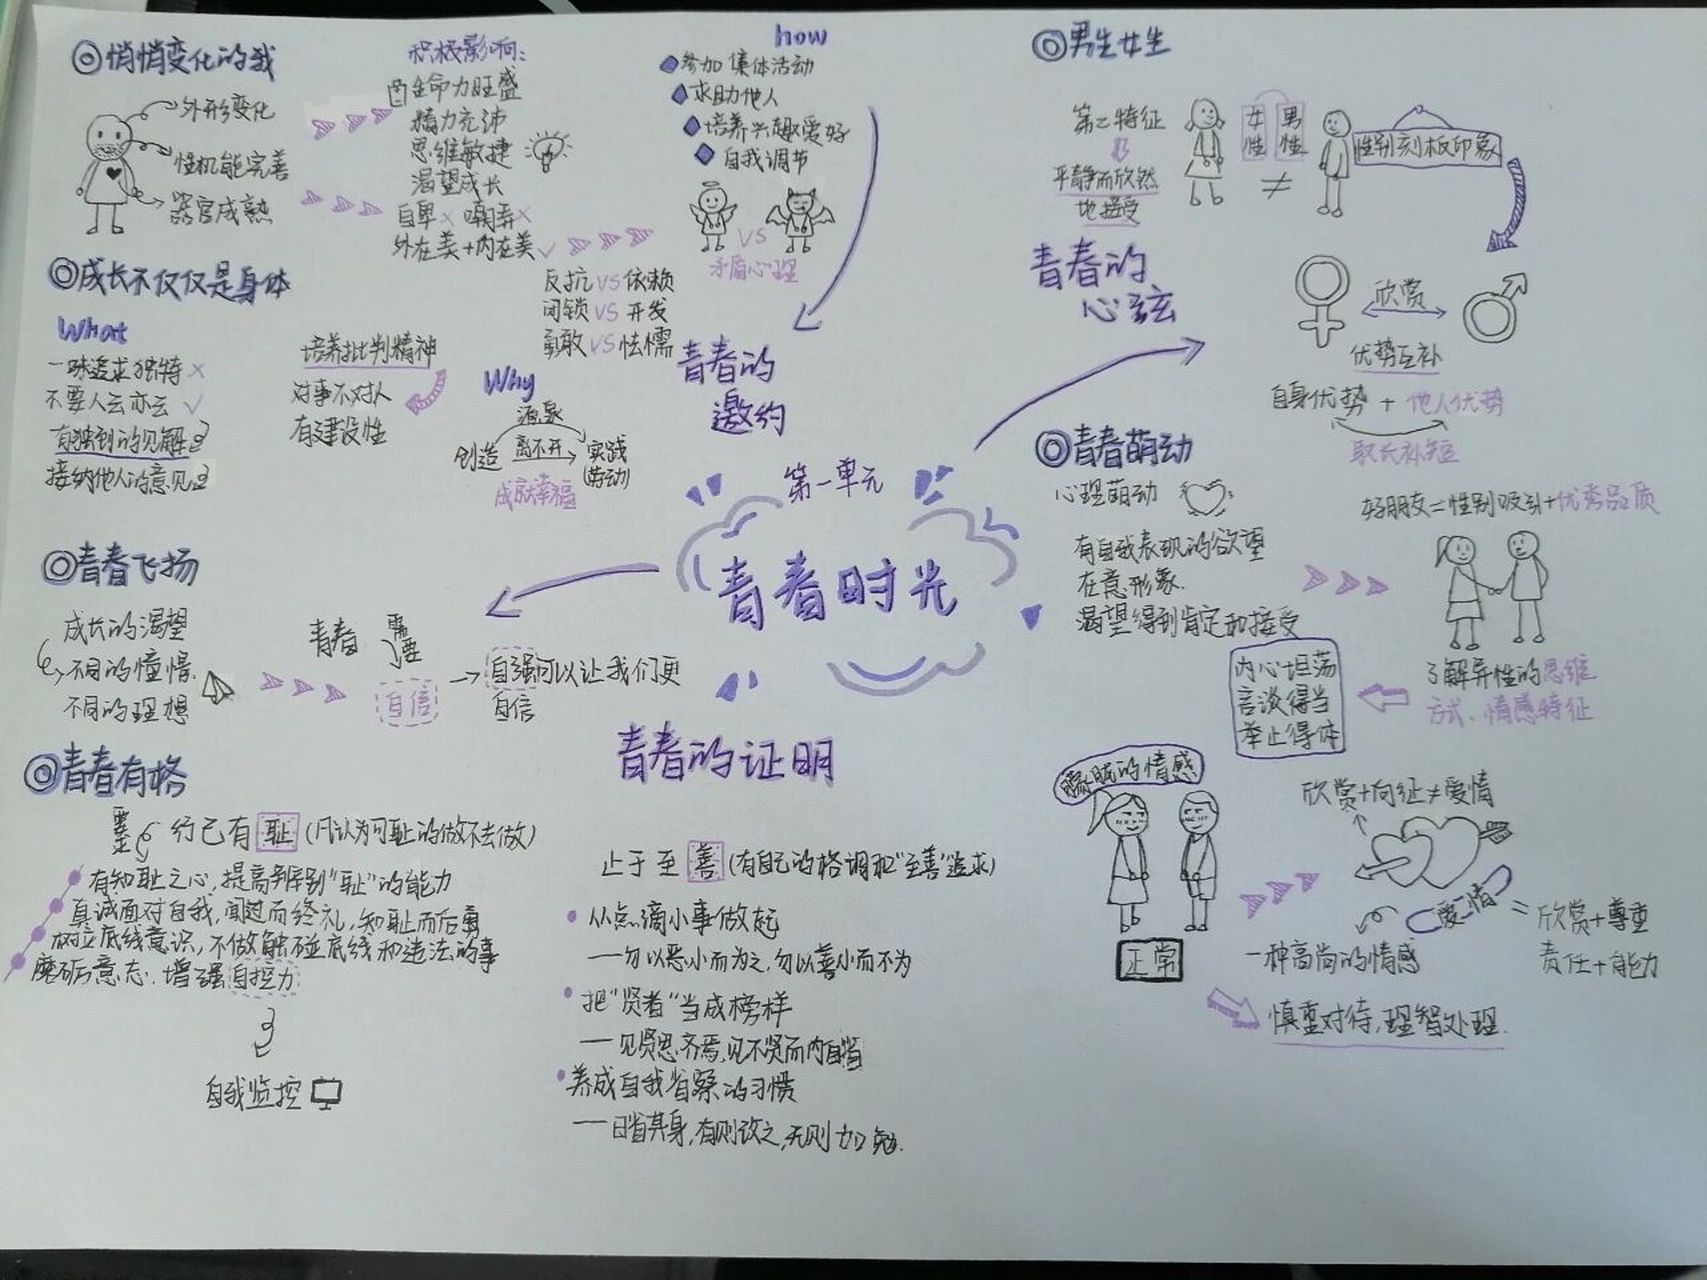 第一单元
青春时光
青春的
邀约
◎悄悄变化的我
外形变化
性机能完善
器官成熟
积极影响:
生命力旺盛
精力充沛
思维敏捷
渴望成长
自卑× 嘲弄×
外在美+内在美✓
how
参加集体活动
求助他人
培养兴趣爱好
自我调节
VS
矛盾心理
反抗VS依赖
闭锁VS开发
勇敢VS怯懦
◎成长不仅仅是身体
What
一味追求独特×
不要人云亦云✓
有独到的见解
接纳他人的意见
培养批判精神
对事不对人
有建设性
Why
源泉
创造 离不开 实践
(劳动)
成就幸福
青春的
心弦
◎男生女生
第二特征
平静而欣然
地接受
女性 男性
≠
性别刻板印象
欣赏
优势互补
自身优势 + 他人优势
取长补短
◎青春萌动
心理萌动
有自我表现的欲望
在意形象
渴望得到肯定和接受
好朋友=性别吸引+优秀品质
了解异性的思维
方式、情感特征
内心坦荡
言谈得当
举止得体
朦胧的情感
正常
欣赏+向往≠爱情
爱情 = 欣赏+尊重
责任+能力
一种高尚的情感
慎重对待,理智处理.
青春的证明
◎青春飞扬
成长的渴望
不同的憧憬
不同的理想
青春 需要
自信
→自强可以让我们更
自信
◎青春有格
要 行己有耻(凡认为可耻的做不去做)
有知耻之心,提高辨别“耻”的能力
真诚面对自我,闻过而终礼,知耻而后勇
树立底线意识,不做触碰底线和违法的事
磨砺意志.增强自控力
自我监控
止于至善(有自己的格调和“至善”追求)
从点滴小事做起
——勿以恶小而为之,勿以善小而不为
把“贤者”当成榜样
——见贤思齐焉,见不贤而内自省
养成自我省察的习惯
——日省其身,有则改之,无则加勉.